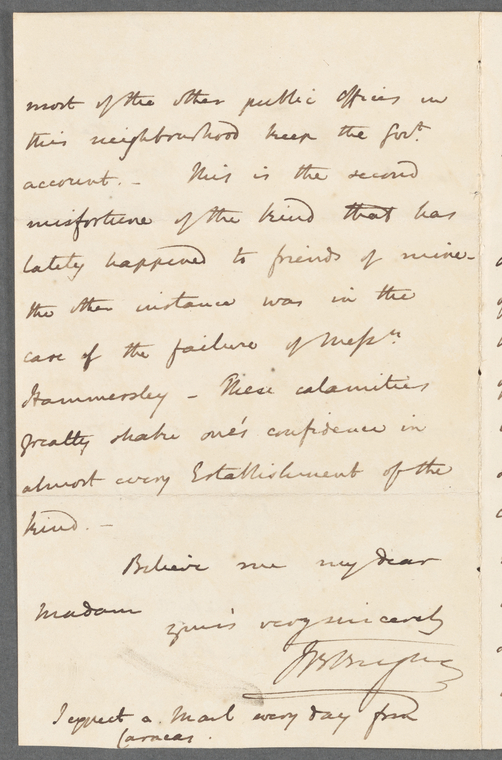 most of the other public offices in
this neighbourhood keep the Govt.
account. - This is the second
misfortune of the kind that has
lately happened to friends of mine -
the other instance was in the
case of the failure of Messrs
Hammersley - These calamities
greatly shake one's confidence in
almost every Establishment of the
kind. -
Believe me my dear
Madam
your's very sincerely
I expect a Mail every day from
Caracas.